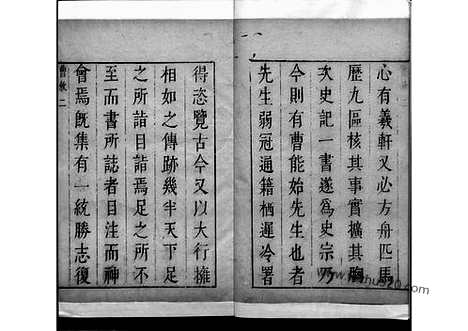 心有義軒又必方舟匹馬
歷九區核其事實擴其胸
次史記一書遂為史宗乃
今則有曹能始先生也者
先生弱冠通籍栖遲冷署
得恣覽古今又以大行擁
相如之傳跡幾半天下足
之所詣目詣焉足之所不
至而書所誌者目注而神
會焉旣集有一統勝志復